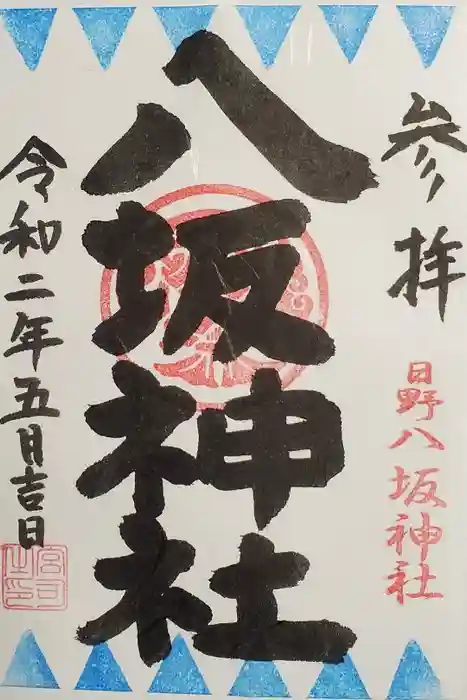 参拝
日野八坂神社
八坂神社
令和二年五月吉日
宮司之印